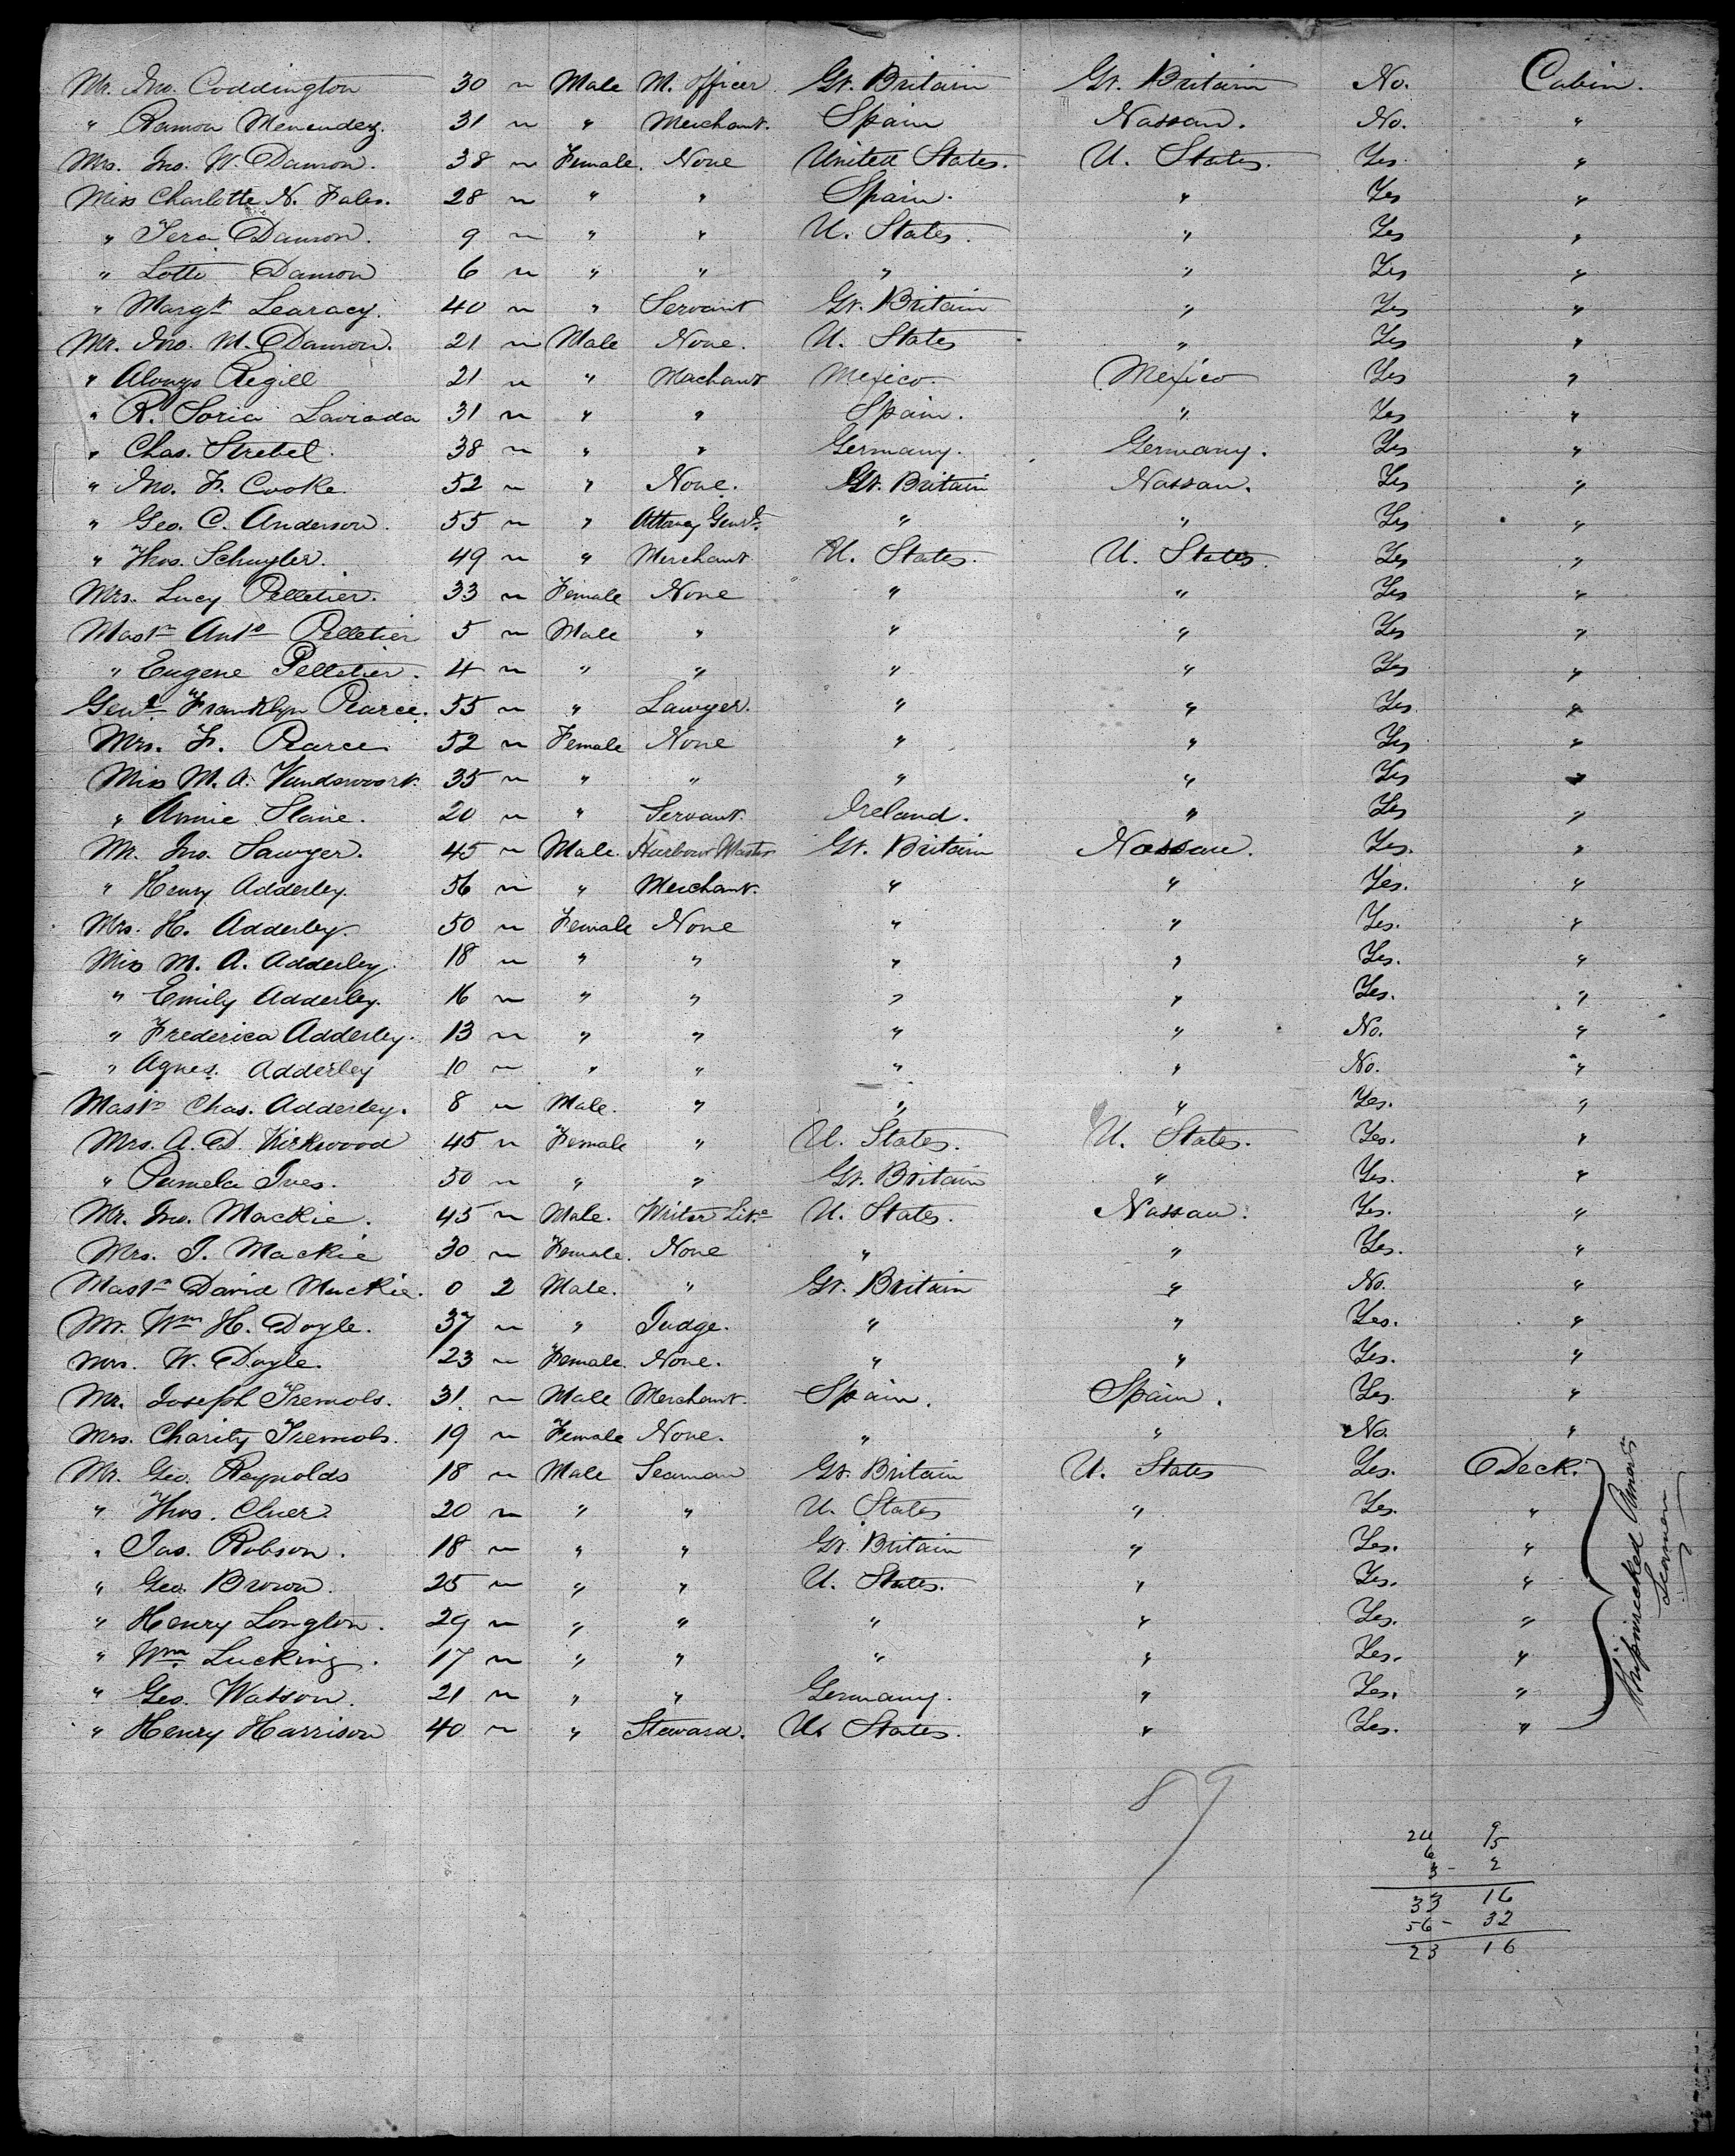 Mr. Jno. Coddington 30 ~ Male M. Officer Gt. Britain Gt. Britain No. Cabin.
" Ramon Menendez. 31 ~ " Merchant. Spain Nassau. No. "
Mrs. Jno. W. Damon. 38 ~ Female. None United States. U. States. Yes. "
Miss Charlotte N. Fales. 28 ~ " " Spain. " Yes "
" Tera Damon. 9 ~ " " U. States. " Yes "
" Lotti Damon 6 ~ " " " " Yes "
" Margt Learacy. 40 ~ " Servant Gt. Britain " Yes "
Mr. Jno. M. Damon. 21 ~ Male None. U. States " Yes "
" Alonzo Regill 21 ~ " Mechant Mexico. Mexico Yes "
" R. Soria Laviada 31 ~ " " Spain. " Yes "
" Chas. Strebel. 38 ~ " " Germany. Germany. Yes "
" Jno. F. Cooke. 52 ~ " None. Gt. Britain Nassau. Yes "
" Geo. C. Anderson. 55 ~ " Attorney Genrl. " " Yes "
" Thos. Schuyler. 49 ~ " Merchant U. States. U. States. Yes "
Mrs. Lucy Pelletier. 33 ~ Female None " " Yes "
Mastr Anto Pelletier 5 ~ Male " " " Yes "
" Eugene Pelletier. 4 ~ " " " " Yes "
Genl. Franklyn Pearce. 55 ~ " Lawyer. " " Yes. "
Mrs. F. Pearce. 52 ~ Female None " " Yes "
Miss M. A. Vandervoort. 35 ~ " " " " Yes "
" Annie Slane. 20 ~ " Servant. Ireland. " Yes "
Mr. Jno. Sawyer. 45 ~ Male. Harbour Master Gt. Britain Nassau. Yes. "
" Henry Adderley. 56 ~ " Merchant. " " Yes. "
Mrs. H. Adderley. 50 ~ Female None " " Yes. "
Miss M. A. Adderley. 18 ~ " " " " Yes. "
" Emily Adderley. 16 ~ " " " " Yes. "
" Frederica Adderley. 13 ~ " " " " No. "
" Agnes. Adderley 10 ~ " " " " No. "
Mastr Chas. Adderley. 8 ~ Male. " " " Yes. "
Mrs. A. D. Kirkwood 45 ~ Female " U. States. U. States. Yes. "
" Pamela Ives. 50 ~ " " Gt. Britain " Yes. "
Mr. Jno. Mackie. 45 ~ Male. Writer Lite U. States. Nassau. Yes. "
Mrs. J. Mackie 30 ~ Female. None " " Yes. "
Mastr David Mackie. 0 2 Male. " Gt. Britain " No. "
Mr. Wm H. Doyle. 37 ~ " Judge. " " Yes. "
Mrs. W. Doyle. 23 ~ Female. None. " " Yes. "
Mr. Joseph Tremols. 31. ~ Male Merchant. Spain. Spain. Yes. "
Mrs. Charity Tremols. 19 ~ Female None. " " No. "
Mr. Geo. Reynolds 18 ~ Male Seaman Gt. Britain U. States Yes. Deck.
" Thos. Cluer. 20 ~ " " U. States " Yes. "
" Jas. Robson. 18 ~ " " Gt. Britain " Yes. "
" Geo. Brown. 25 ~ " " U. States. " Yes. "
" Henry Longton. 29 ~ " " " " Yes. "
" Wm. Lucking. 17 ~ " " " " Yes. "
" Geo. Watson. 21 ~ " " Germany. " Yes. "
" Henry Harrison 40 ~ " Steward. U. States. " Yes. "
Shipwrecked Amarn
Seamen
89
24 9
6 5
3 - 2
33 16
56 - 32
23 16